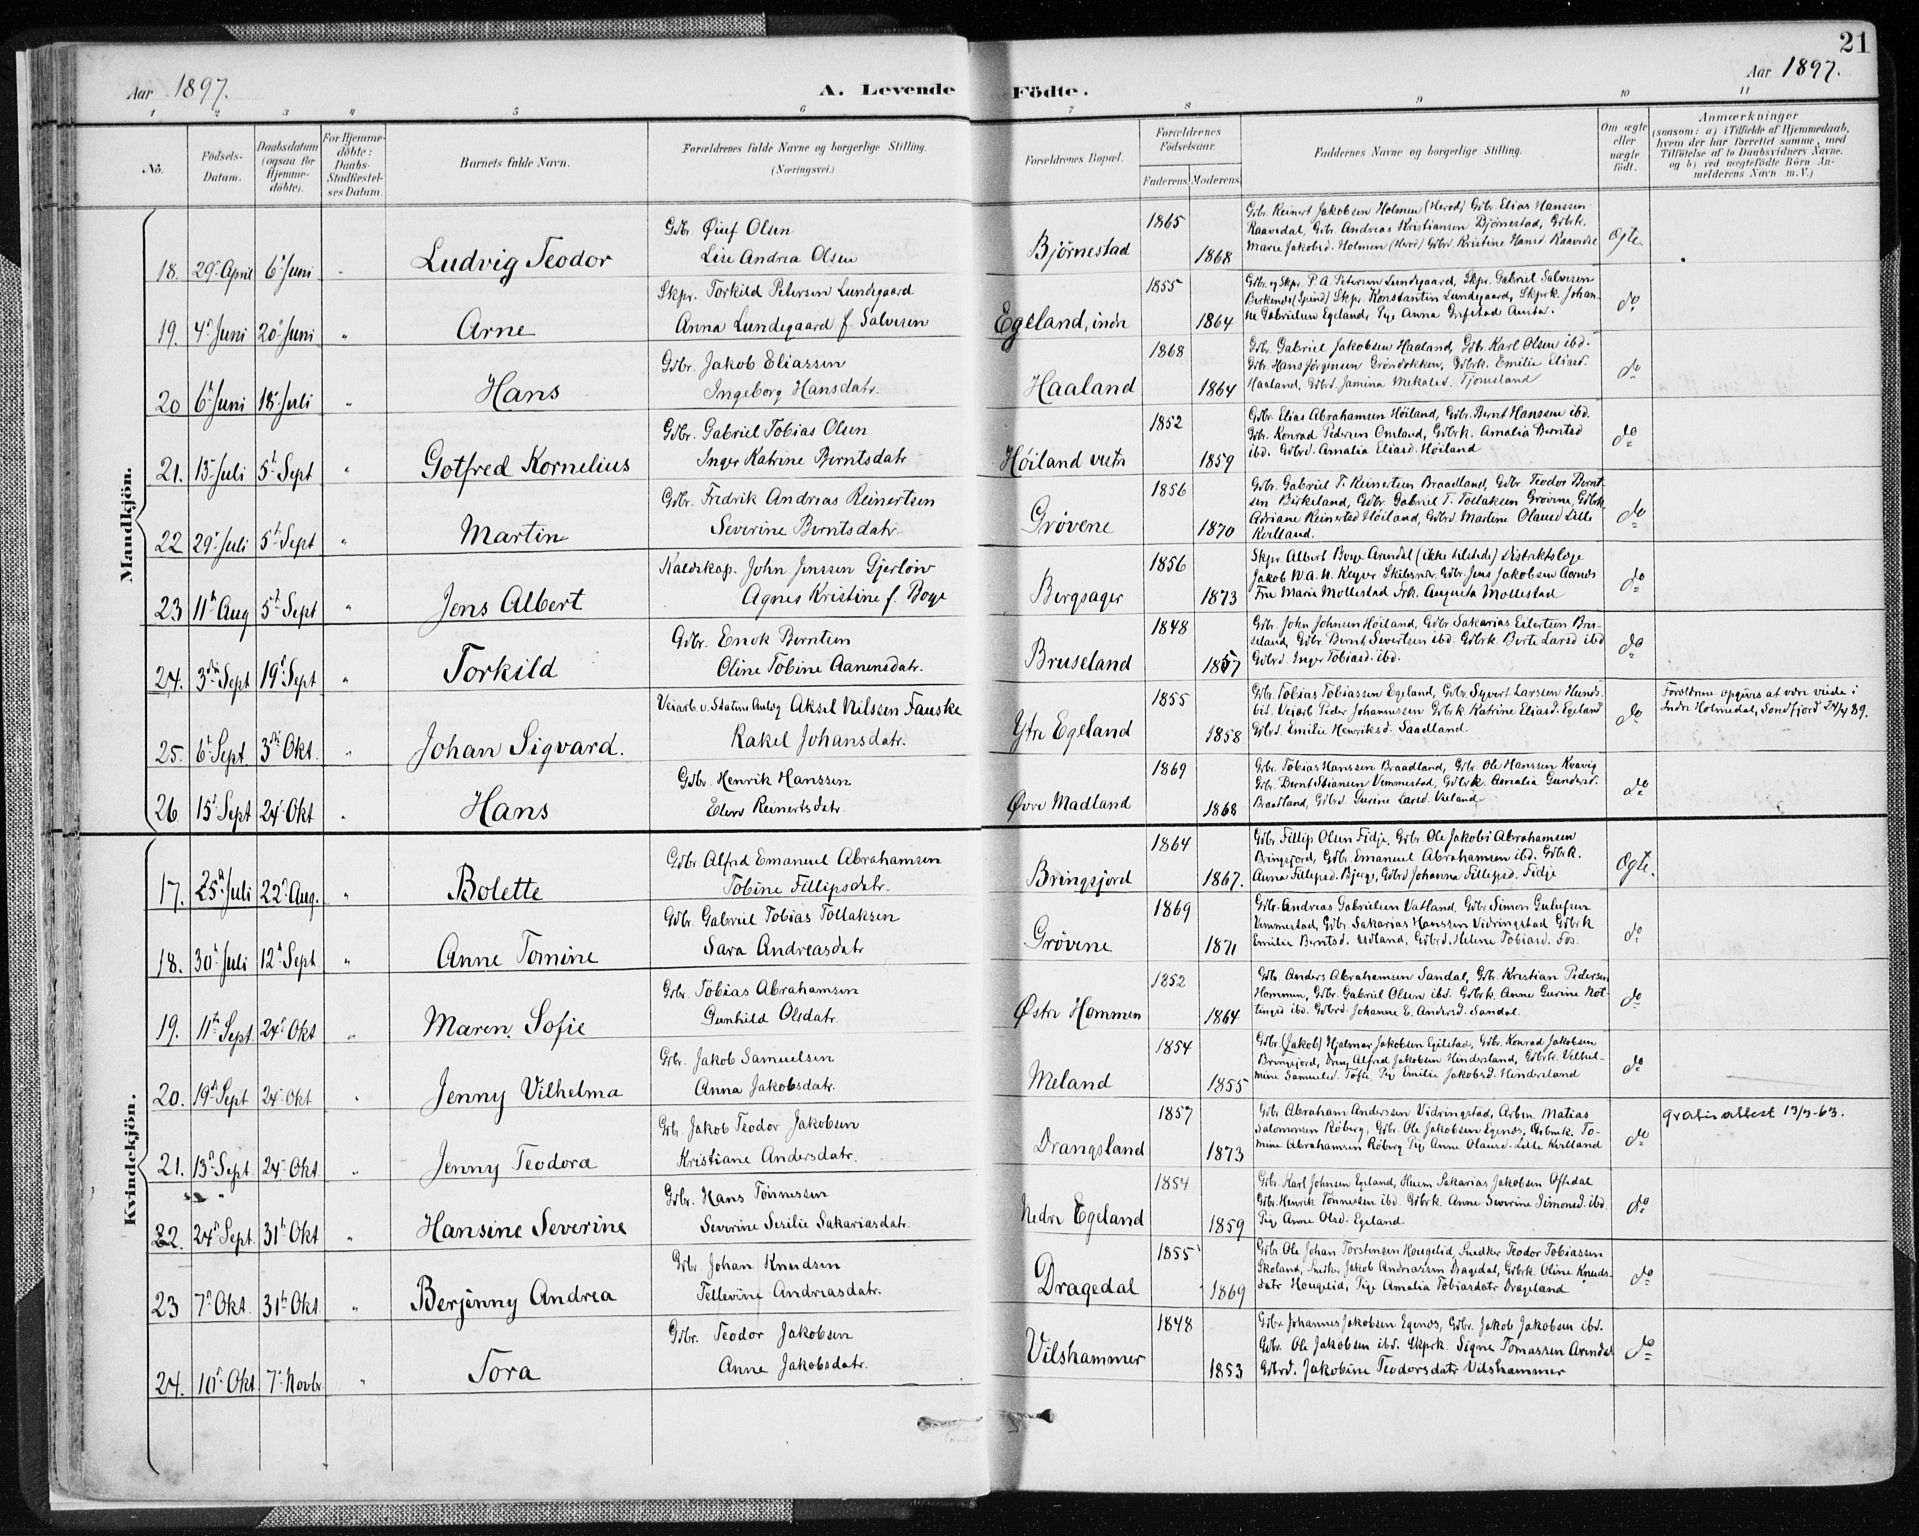 21
Aar 1897.
A. Levende Födte.
Aar 1897.
1 2 3 4 5 6 7 8 9 10 11
No.
Födsels-Datum.
Daabsdatum (ogsaa for Hjemme-döbte).
For Hjemme-döbte: Daabs-Stadfæstel-ses Datum.
Barnets fulde Navn.
Forældrenes fulde Navne og borgerlige Stilling.
(Næringsvei.)
Forældrenes Bopæl.
Forældrenes Födselsaar.
Faderens. Moderens.
Faddernes Navne og borgerlige Stilling.
Om ægte eller uægte födt.
Anmærkninger
(saasom: a) i Tilfælde af Hjemmedaab,
hvem der har forrettet samme, med
Tilföielse af to Daabsvidners Navne.
og b) ved uægtefödte Börn An-
melderens Navn m. V.)
Mandkjön.
18. 29 April 6 Juni " Ludvig Teodor
Gdbr. Øiuf Olsen
Lise Andrea Olsen
Bjørnestad 1865 1868
Gdbr. Reinert Jakobsen Holmen (Herod) Gdbr. Elias Hanssen
Raavidal, Gdbr. Andreas Kristiansen Bjørnestad, Gdbrk.
Marie Jakobsd. Holmen (Herod) Gdbrd. Kristine Hansd. Raavidal
Ægte.
19. 4 Juni 20 Juni " Arne
Skpr. Torkild Petersen Lundegaard
Anna Lundegaard f. Salvesen
Egeland, indr 1855 1864
Gdbr. og Skpr. P. A. Petersen Lundegaard, Skpr. Gabriel Salvesen
Birkenes (Spind) Skpr. Konstantin Lundegaard, Skprk. Johan-
ne Gabrielsen Egeland, Pige Anna
do
20 6 Juni 18 Juli " Hans
Gdbr. Jakob Eliassen
Ingeborg Hansdatr.
Haaland 1868 1864
Gdbr. Gabriel Jakobsen Haaland, Gdbr. Karl Olsen ibd.
Gdbr. Hans Jørgensen Grøndokken, Gdbrk. Emilie Eliasd.
Haaland, Gdbrd. Jamina Mekalsd. Tjomsland
do
21. 15 Juli 5 Sept " Gotfred Kornelius
Gdbr. Gabriel Tobias Olsen
Inger Katrine Berntsdatr
Høiland vestr 1852 1859
Gdbr. Elias Abrahamsen Høiland, Gdbr. Bernt Hanssen ibd.
Gdbr. Konrad Pedersen Omland, Gdbrk. Amalia Berntsd
ibd. Gdbrd. Amalia Eliasd. Høiland
do
22 29 Juli 5 Sept " Martin
Gdbr. Fredrik Andreas Reinertsen
Severine Berntsdatr.
Grøvene 1856 1870
Gdbr. Gabriel T. Reinertsen Braadland, Gdbr. Teodor Bernt-
sen Birkeland, Gdbr. Gabriel T. Tollaksen Grøvene, Gdbrk
Adriane Reinertsd Høiland, Gdbrd Martine Olausd Lille
Kvilland.
do
23 11 Aug 5 Sept " Jens Albert
Kaldskap. John Jenssen Gjerløw
Agnes Kristine f. Boye
Bergsager 1856 1873
Skpr. Albert Boye Arendal (ikke tilstede) Distriktslæge
Jakob W. A. N. Keyser Skibsnær, Gdbr Jens Jakobsen Aaenes
Fru Marie Mollestad Frk. Augusta Mollestad
do
24. 3 Sept 19 Sept " Torkild
Gdbr. Enok Berntsen
Oline Tobine Aanensdatr.
Bruseland 1848 1857
Gdbr. John Johnsen Høiland, Gdbr Sakarias Eilertsen Bru-
seland, Gdbr. Bernt Severtsen ibd. Gdbrk Berte Larsd ibd
Gdbrd. Inger Tobiasd. ibd.
do
25. 6 Sept. 3 Okt. " Johan Sigvard.
Veiarb. v. Statens Anlæg Aksel Nilssen Fauske
Rakel Johansdatr.
Ytre Egeland 1855 1858
Gdbr. Tobias Tobiassen Egeland, Gdbr. Syvert Larssen Hunds-
bit. Veiarb Peder Johannessen Gdbrk Katrine Eliasd. Egeland
Gdbrd. Emilie Henriksd. Saadland.
do
Forældrene opgives at være viede i
Indre Holmedal, Søndfjord 24/4 89.
26. 15 Sept 24 Okt " Hans
Gdbr. Henrik Hanssen
Elen Reinertsdatr
Øvre Madland 1869 1868
Gdbr. Tobias Hanssen Braadland, Gdbr. Ole Hanssen Kvavig
Gdbr. Bernt Stiansen Vemmestad, Gdbrk. Amalia Gundersd.
Braadland, Gdbrd. Gurine Larsd. Veeland
do
Kvindekjön.
17. 25 Juli 22 Aug. " Bolette
Gdbr Alfred Emanuel Abrahamsen
Tobine Fillipsdatr.
Bringsjord 1864 1867.
Gdbr. Fillip Olsen Fidje, Gdbr. Ole Jakobs Abrahamsen
Bringsjord, Gdbr. Emanuel Abrahamsen ibd. Gdbrk.
Anna Fillipsd. Bjerge, Gdbrd Johanna Fillipsd. Fidje
Ægte.
18. 30 Juli 12 Sept " Anne Tomine
Gdbr. Gabriel Tobias Tollaksen
Sara Andreasdatr
Grøvene 1869 1871
Gdbr. Andreas Gabrielsen Vatland, Gdbr. Simon Gulufsen
Vemmestad, Gdbr Sakarias Hanssen Vidringstad Gdbrk
Emilie Berntsd. Udland, Gdbrd. Helene Tobiasd. Fos.
do
19. 11 Sept. 24 Okt " Maren Sofie
Gdbr. Tobias Abrahamsen
Gunhild Olsdatr.
Østre Hommen 1852 1864
Gdbr. Anders Abrahamsen Sandal, Gdbr. Kristian Pedersen
Hommen, Gdbr. Gabriel Olsen ibd. Gdbrk. Anne Gurine Not-
tinged ibd. Gdbrd. Johanne E. Andersd. Sandal.
do
20. 19 Sept 24 Okt " Jenny Vilhelma
Gdbr. Jakob Samuelsen
Anna Jakobsdatr.
Meland 1854 1855
Gdbr. (Jakob) Hjalmar Jakobsen Egilstad, Gdbr. Konrad Jakobsen
Bringsjord, Dreng Alfred Jakobsen Hindersland, Gdbrk. Vilhel-
mine Samuelsd. Tofte, Pig Emilie Jakobsd. Hindersland
do
21. 13 Sept. 24 Okt. " Jenny Teodora
Gdbr. Jakob Teodor Jakobsen
Kristiane Andersdatr.
Drangsland 1857 1873
Gdbr Abraham Anderssen Vidringstad, Arbm Matias
Salomonsen Røberg, Gdbr. Ole Jakobsen Egenæs, Gdbmk. To-
mine Abrahamsen Røberg Pig Anne Olausd. Lille Kvilland
do
gratisattest 13/3-63.
22. 24 Sept. 31 Okt " Hansine Severine
Gdbr. Hans Tønnessen
Severine Sesilie Sakariasdatr.
Nedre Egeland 1854 1859
Gdbr. Karl Johnsen Egeland, Husm Sakarias Jakobsen Oftedal
Gdbr. Henrik Tønnessen ibd. Gdbrk. Anne Severine Simonsd. ibd
Pig Anne Olsd. Egeland.
do
23 7 Okt. 31 Okt. " Berjenny Andrea
Gdbr. Johan Knudsen
Tellevine Andreasdatr.
Dragedal 1855 1869
Gdbr Ole Johan Torstensen Hougelid, Snedker Teodor Tobiassen
Skoland, Snedker Jakob Andreassen Dragedal, Gdbrk. Oline Knuds-
datr Hougelid, Pige Amalia Tobiasdatr Drageland
do
24. 10 Okt 7 Novbr " Tora
Gdbr. Teodor Jakobsen
Anne Jakobsdatr.
Vilshammer 1848 1853
Gdbr. Johannes Jakobsen Egenæs, Gdbr. Jakob Jakobsen ibd.
Gdbr. Ole Jakobsen ibd. Skprk. Signe Tomassen Arendal
Gdbrd. Jakobine Teodorsdatr Vilshammer
do